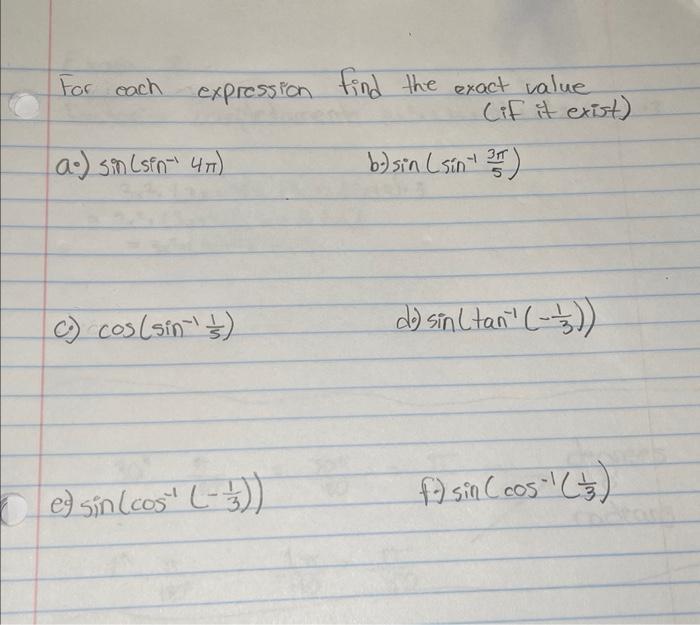 For each expression find the exact value
(if it exist)
a.) sin(sin⁻¹ 4π) b.) sin(sin⁻¹ 3π/5)
c.) cos(sin⁻¹ 1/5) d.) sin(tan⁻¹(-1/3))
e.) sin(cos⁻¹(-1/3)) f.) sin(cos⁻¹(1/3)